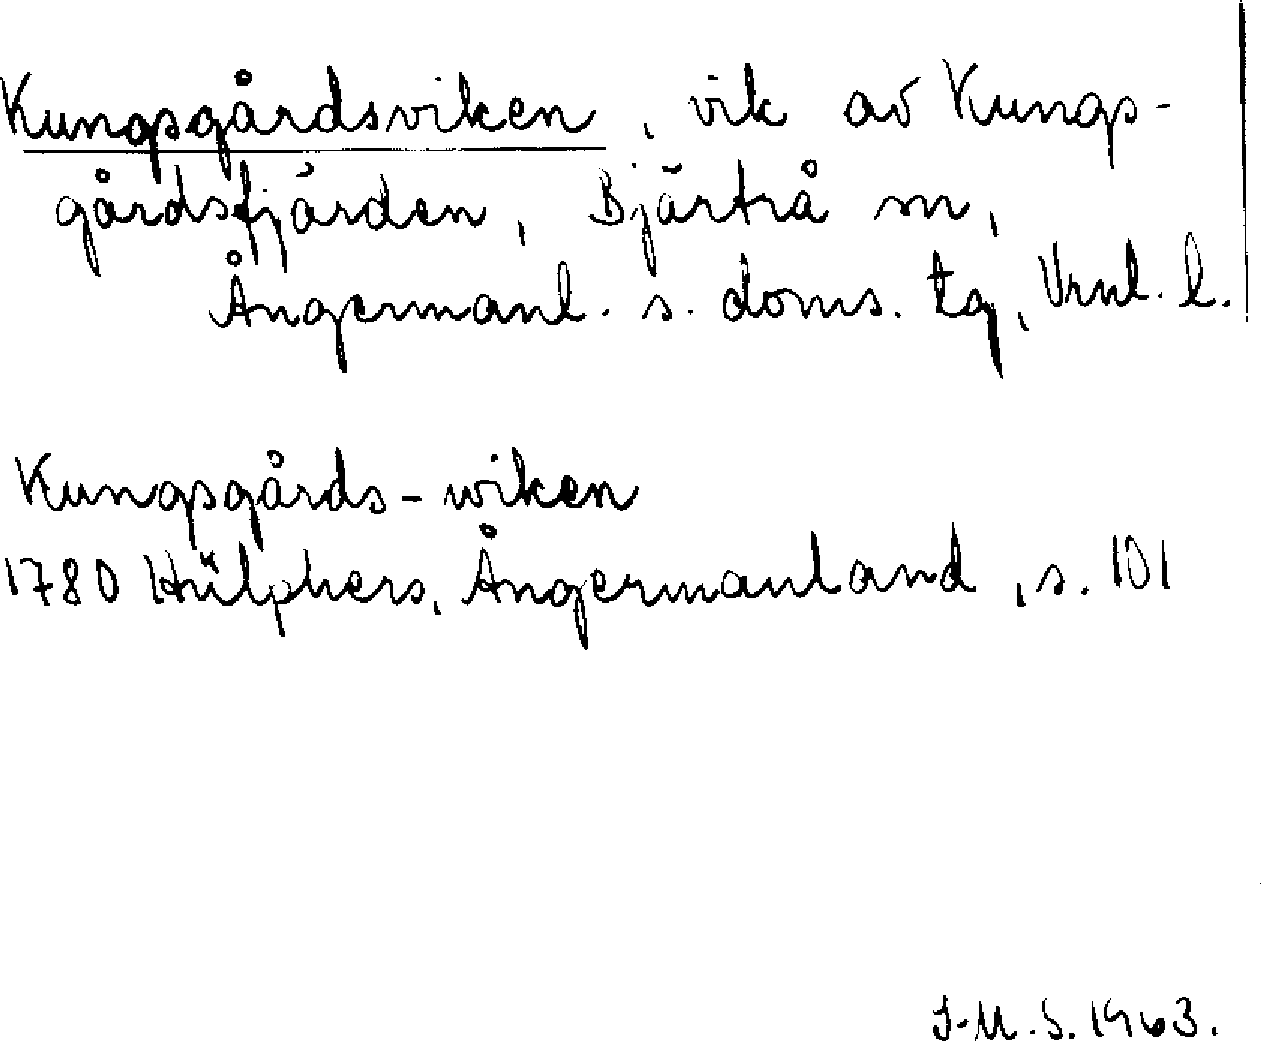 Kungsgårdsviken, vik av Kungs-
gårdsfjärden, Bjärtrå sn,
Ångermanl. s. doms. tg, Vrnl. l.
Kungsgårds-wiken
1780 Hülphers, Ångermanland, s. 101
J.M.S. 1963.